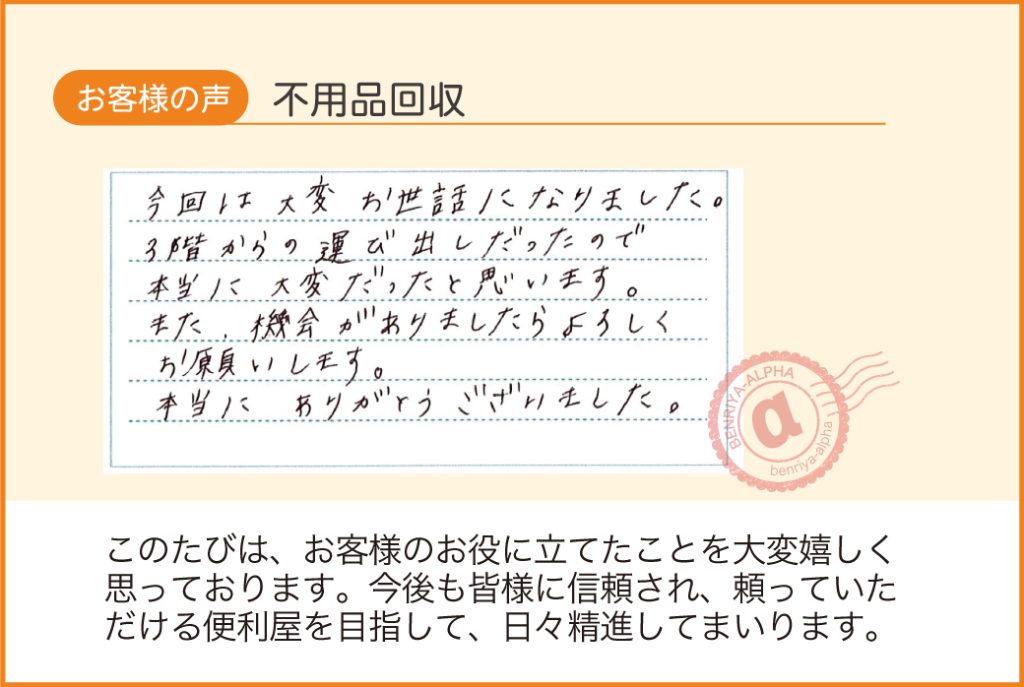 お客様の声 不用品回収
今回は 大変 お世話になりました。
3階からの 運び出しだったので
本当に 大変だったと思います。
また、機会がありましたらよろしく
お願いします。
本当に ありがとうございました。
BENRIYA-ALPHA
α
benriya-alpha
このたびは、お客様のお役に立てたことを大変嬉しく
思っております。今後も皆様に信頼され、頼っていた
だける便利屋を目指して、日々精進してまいります。